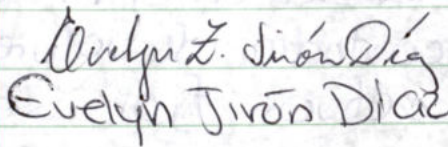 Evelyn Z. Jirón Díaz
Evelyn Jirón Díaz